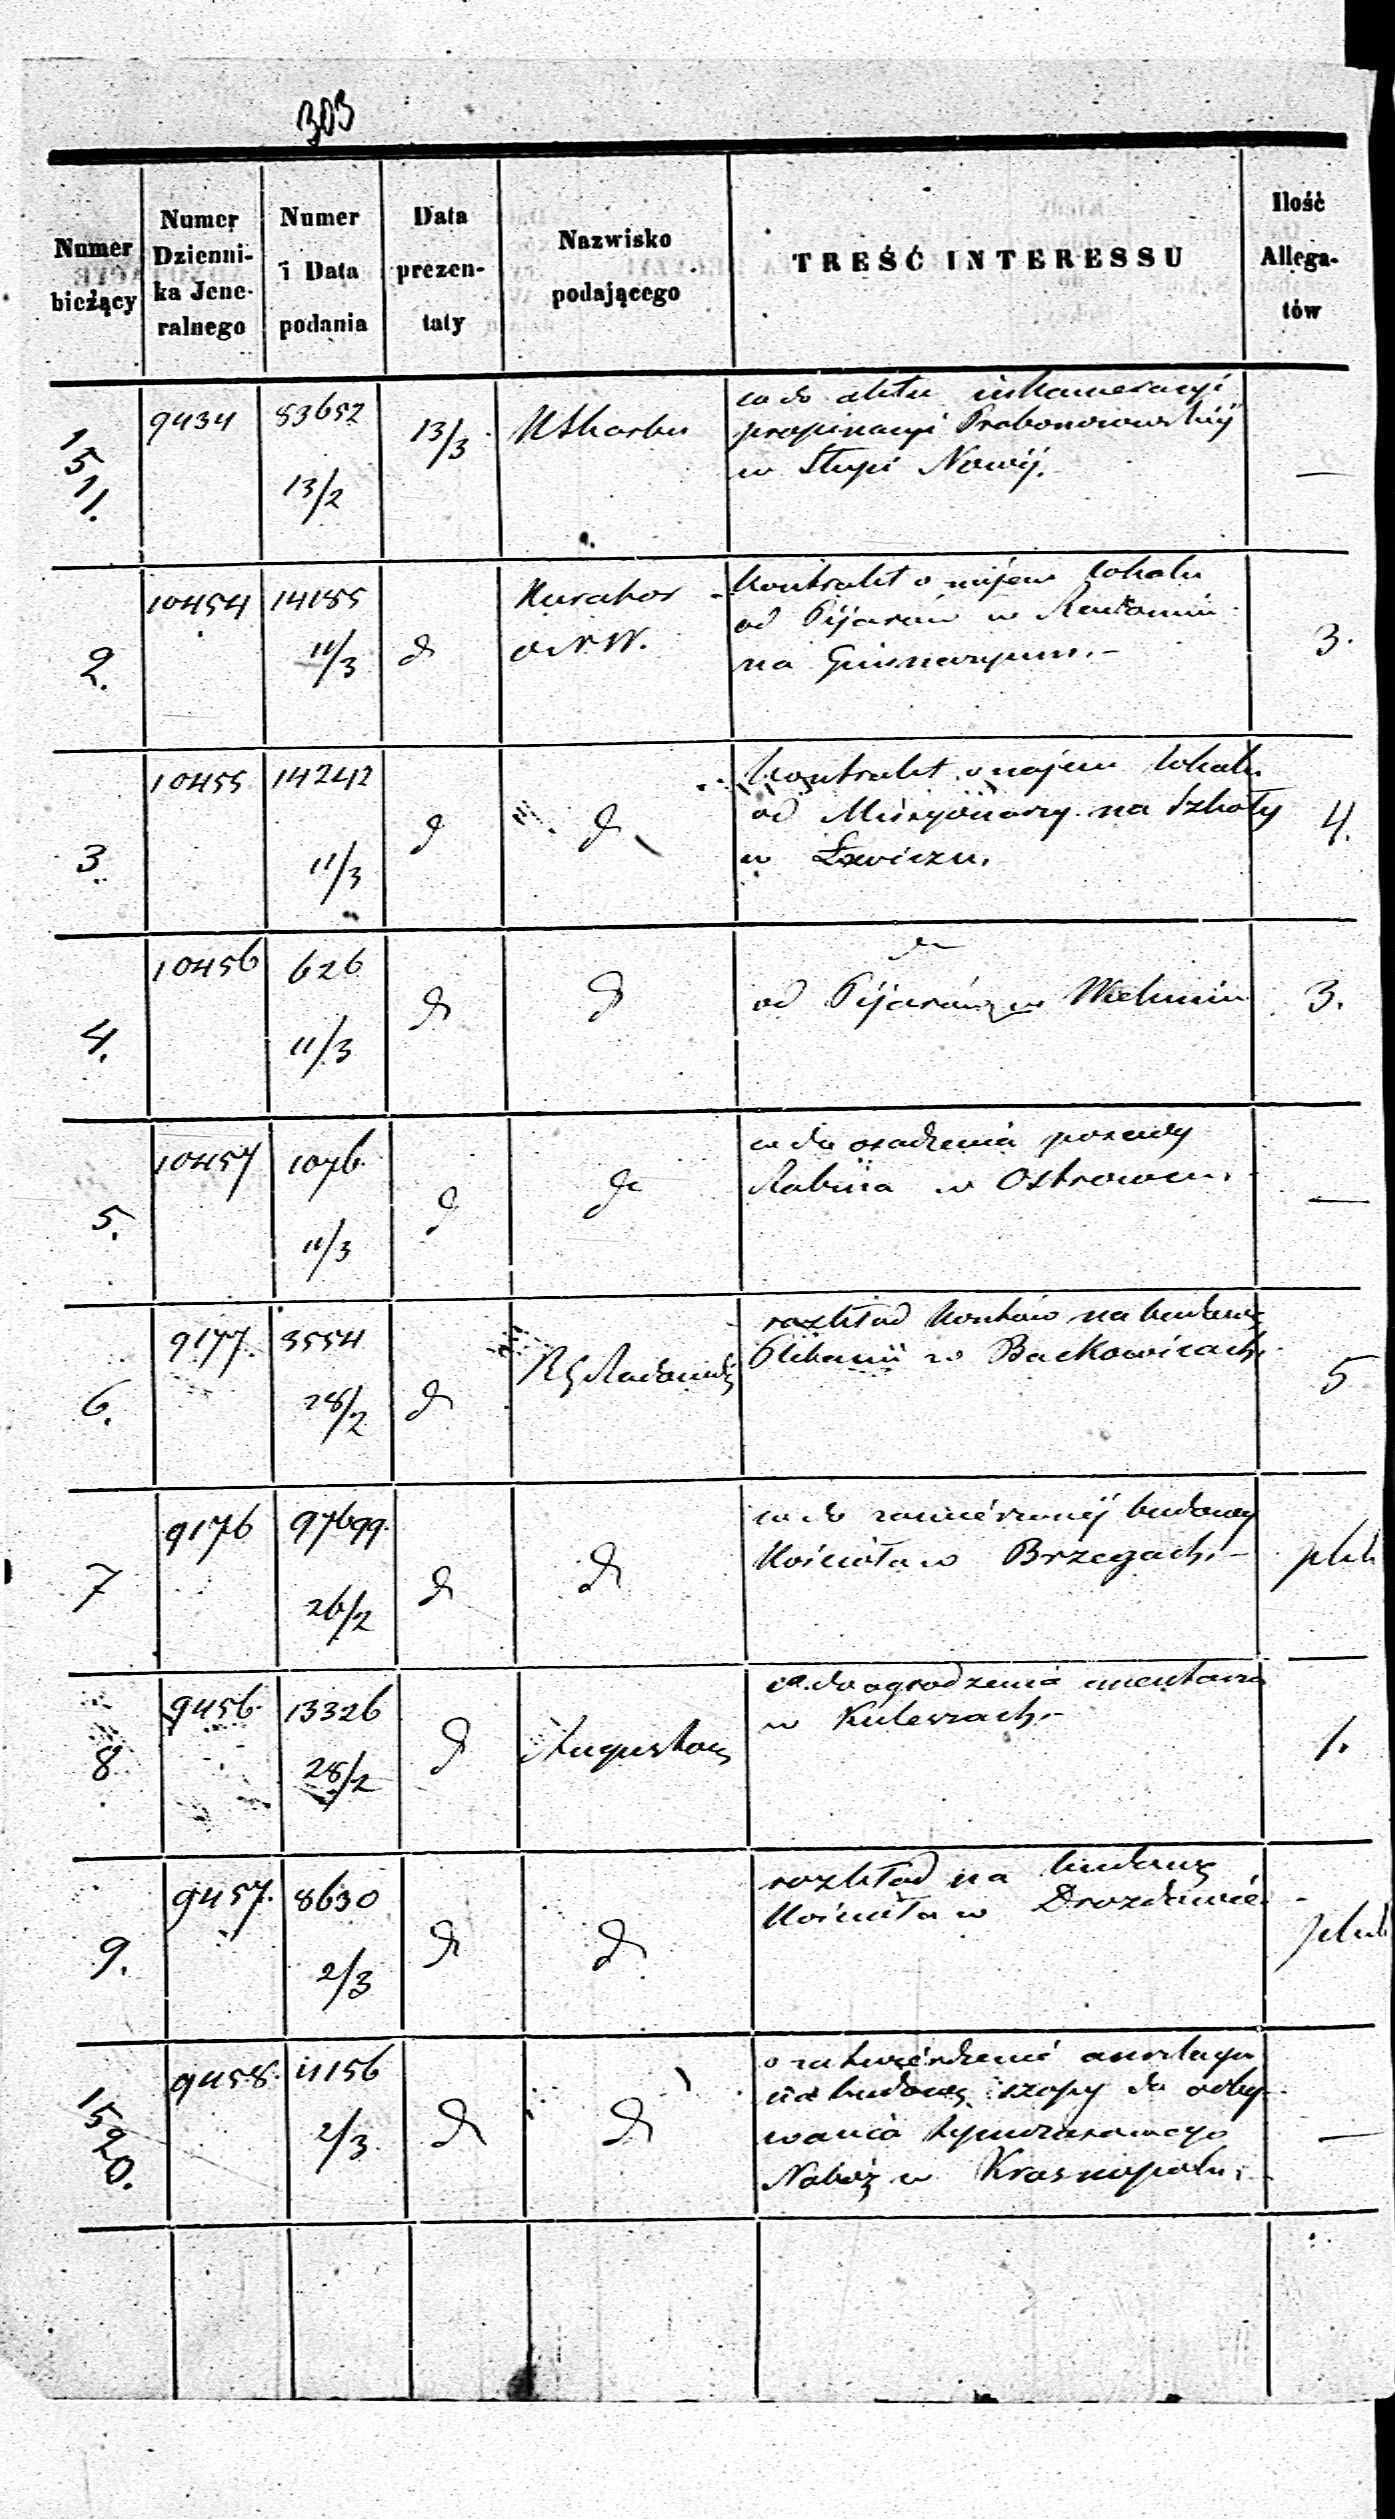 303
Numer bieżący | Numer Dzienni- ka Jene- ralnego | Numer i Data podania | Data prezen- taty | Nazwisko podającego | TREŚĆ INTERESSU | Ilość Allega- tów
1511. | 9434 | 83652 13/2 | 13/3 | KSkarbu | co do aktu inkameracyi
propinacyi Probonowskiij
w Słupi Nowij. | —
2. | 10454 | 14185 11/3 | d | Kurator
ONW. | Kontrakt o najem lokalu
od Pijarów w Radomiu
na Gimnazyum.- | 3.
3. | 10455 | 14242 11/3 | d | d | Kontrakt o najem lokalu
od Missyonarzy na Szkoły
w Łowiczu. | 4.
4. | 10456 | 626 11/3 | d | d | d
od Pijarów w Wieluniu | 3.
5. | 10457 | 1076 11/3 | d | d | co do osadzenia posady
Rabina w Ostrowcu. | —
6. | 9177. | 3554 28/2 | d | RG Radomsk | rozkład kosztów na budowę
Plebanii w Backowicach. | 5
7 | 9176 | 97699. 26/2 | d | d | co do zamierzonéj budowy
Kościoła w Brzegach.-
8 | 9456. | 13326 28/2 | d | Augustow | co do ogrodzenia cmentarza
w Kuleszach.- | 1.
9. | 9457. | 8630 2/3 | d | d | rozkład na budowę
Kościoła w Drozdowie
1520. | 9458. | 11156 2/3 | d | d | o zatwierdzenie anszlagu
na budowę szopy do odby-
wania tymczasowego
Naboż w Krasnopolu. | —